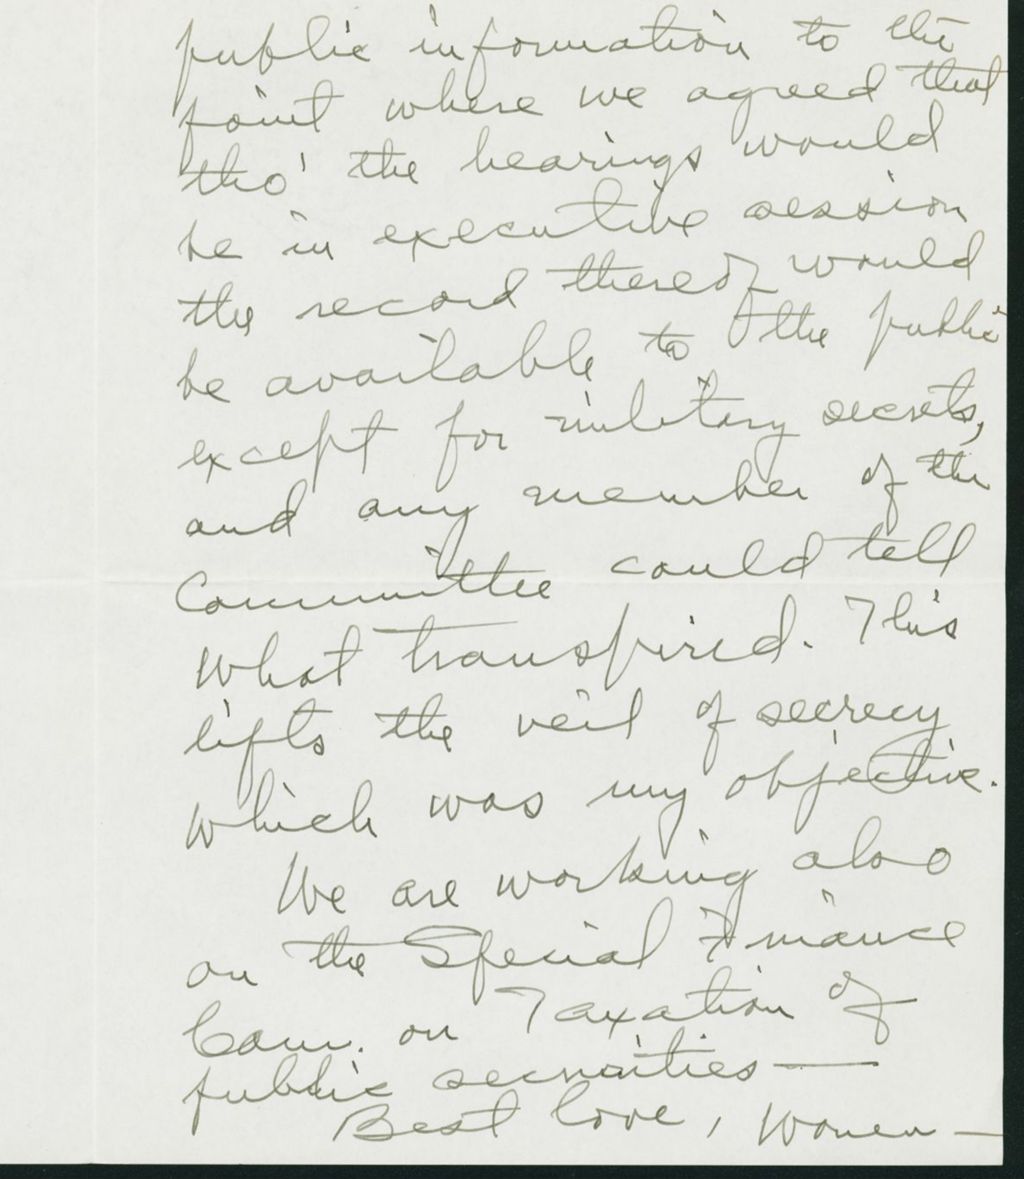 public information to the
point where we agreed that
tho' the hearings would
be in executive session
the record thereof would
be available to the public
except for military secrets,
and any member of the
Committee could tell
what transpired. This
lifts the veil of secrecy
which was my objective.
We are working also
on the Special Finance
Com. on Taxation of
public securities —
Best love, Warren —